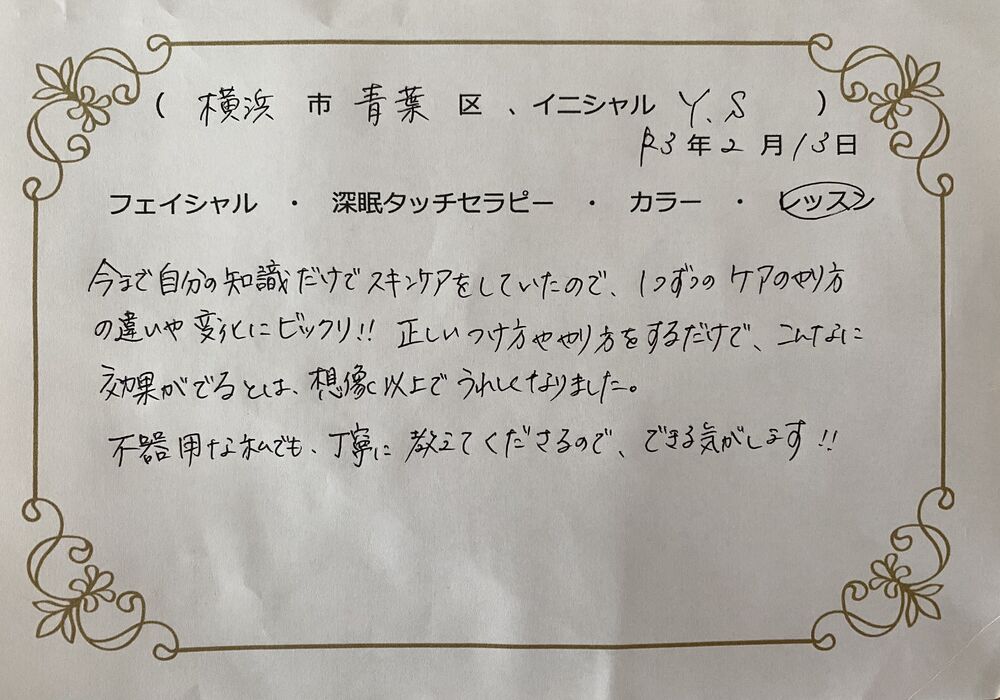 ( 横浜 市 青葉 区 、イニシャル Y.S )
R3年2月13日
フェイシャル ・ 深眠タッチセラピー ・ カラー ・ レッスン
今まで自分の知識だけでスキンケアをしていたので、1つずつのケアのやり方
の違いや変化にビックリ!! 正しいつけ方ややり方をするだけで、こんなに
効果がでるとは、想像以上でうれしくなりました。
不器用な私でも、丁寧に教えてくださるので、できる気がします!!